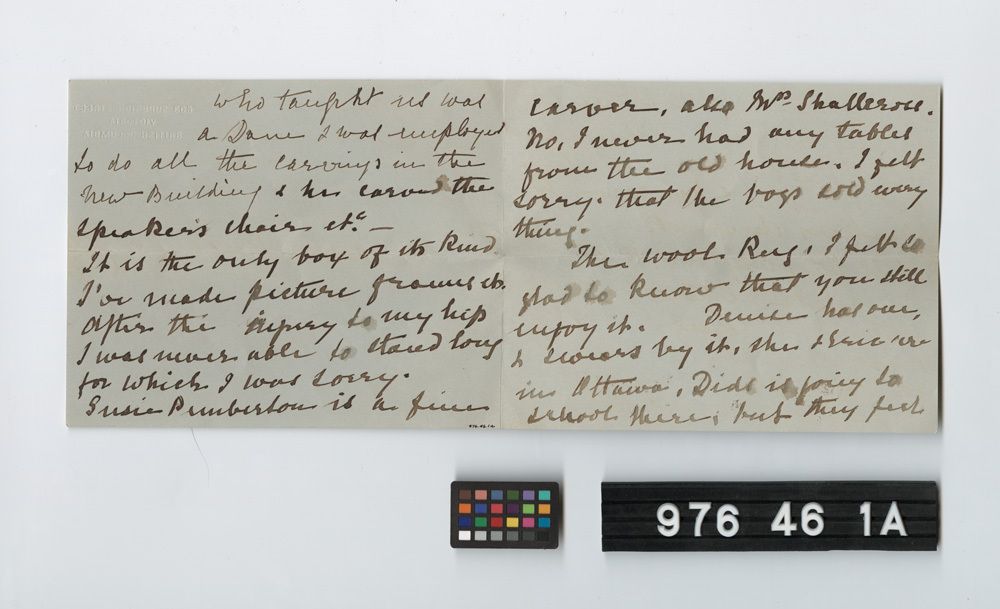 who taught us was
a Dane & was employed
to do all the carvings in the
New Building & he carved the
Speaker's chair etc. —
It is the only box of its kind
I've made picture frames etc.
After the injury to my hip
I was never able to stand long
for which I was sorry.
Susie Pemberton is a fine
carver, also Mrs Shallcross.
No, I never had any tables
from the old house. I felt
sorry that the boys sold every
thing.
The wool Rug, I felt so
glad to know that you still
enjoy it. Denise has one,
& swears by it, she & Eric are
in Ottawa, Didi is going to
school there, but they feel
976.46.1A
976 46 1A